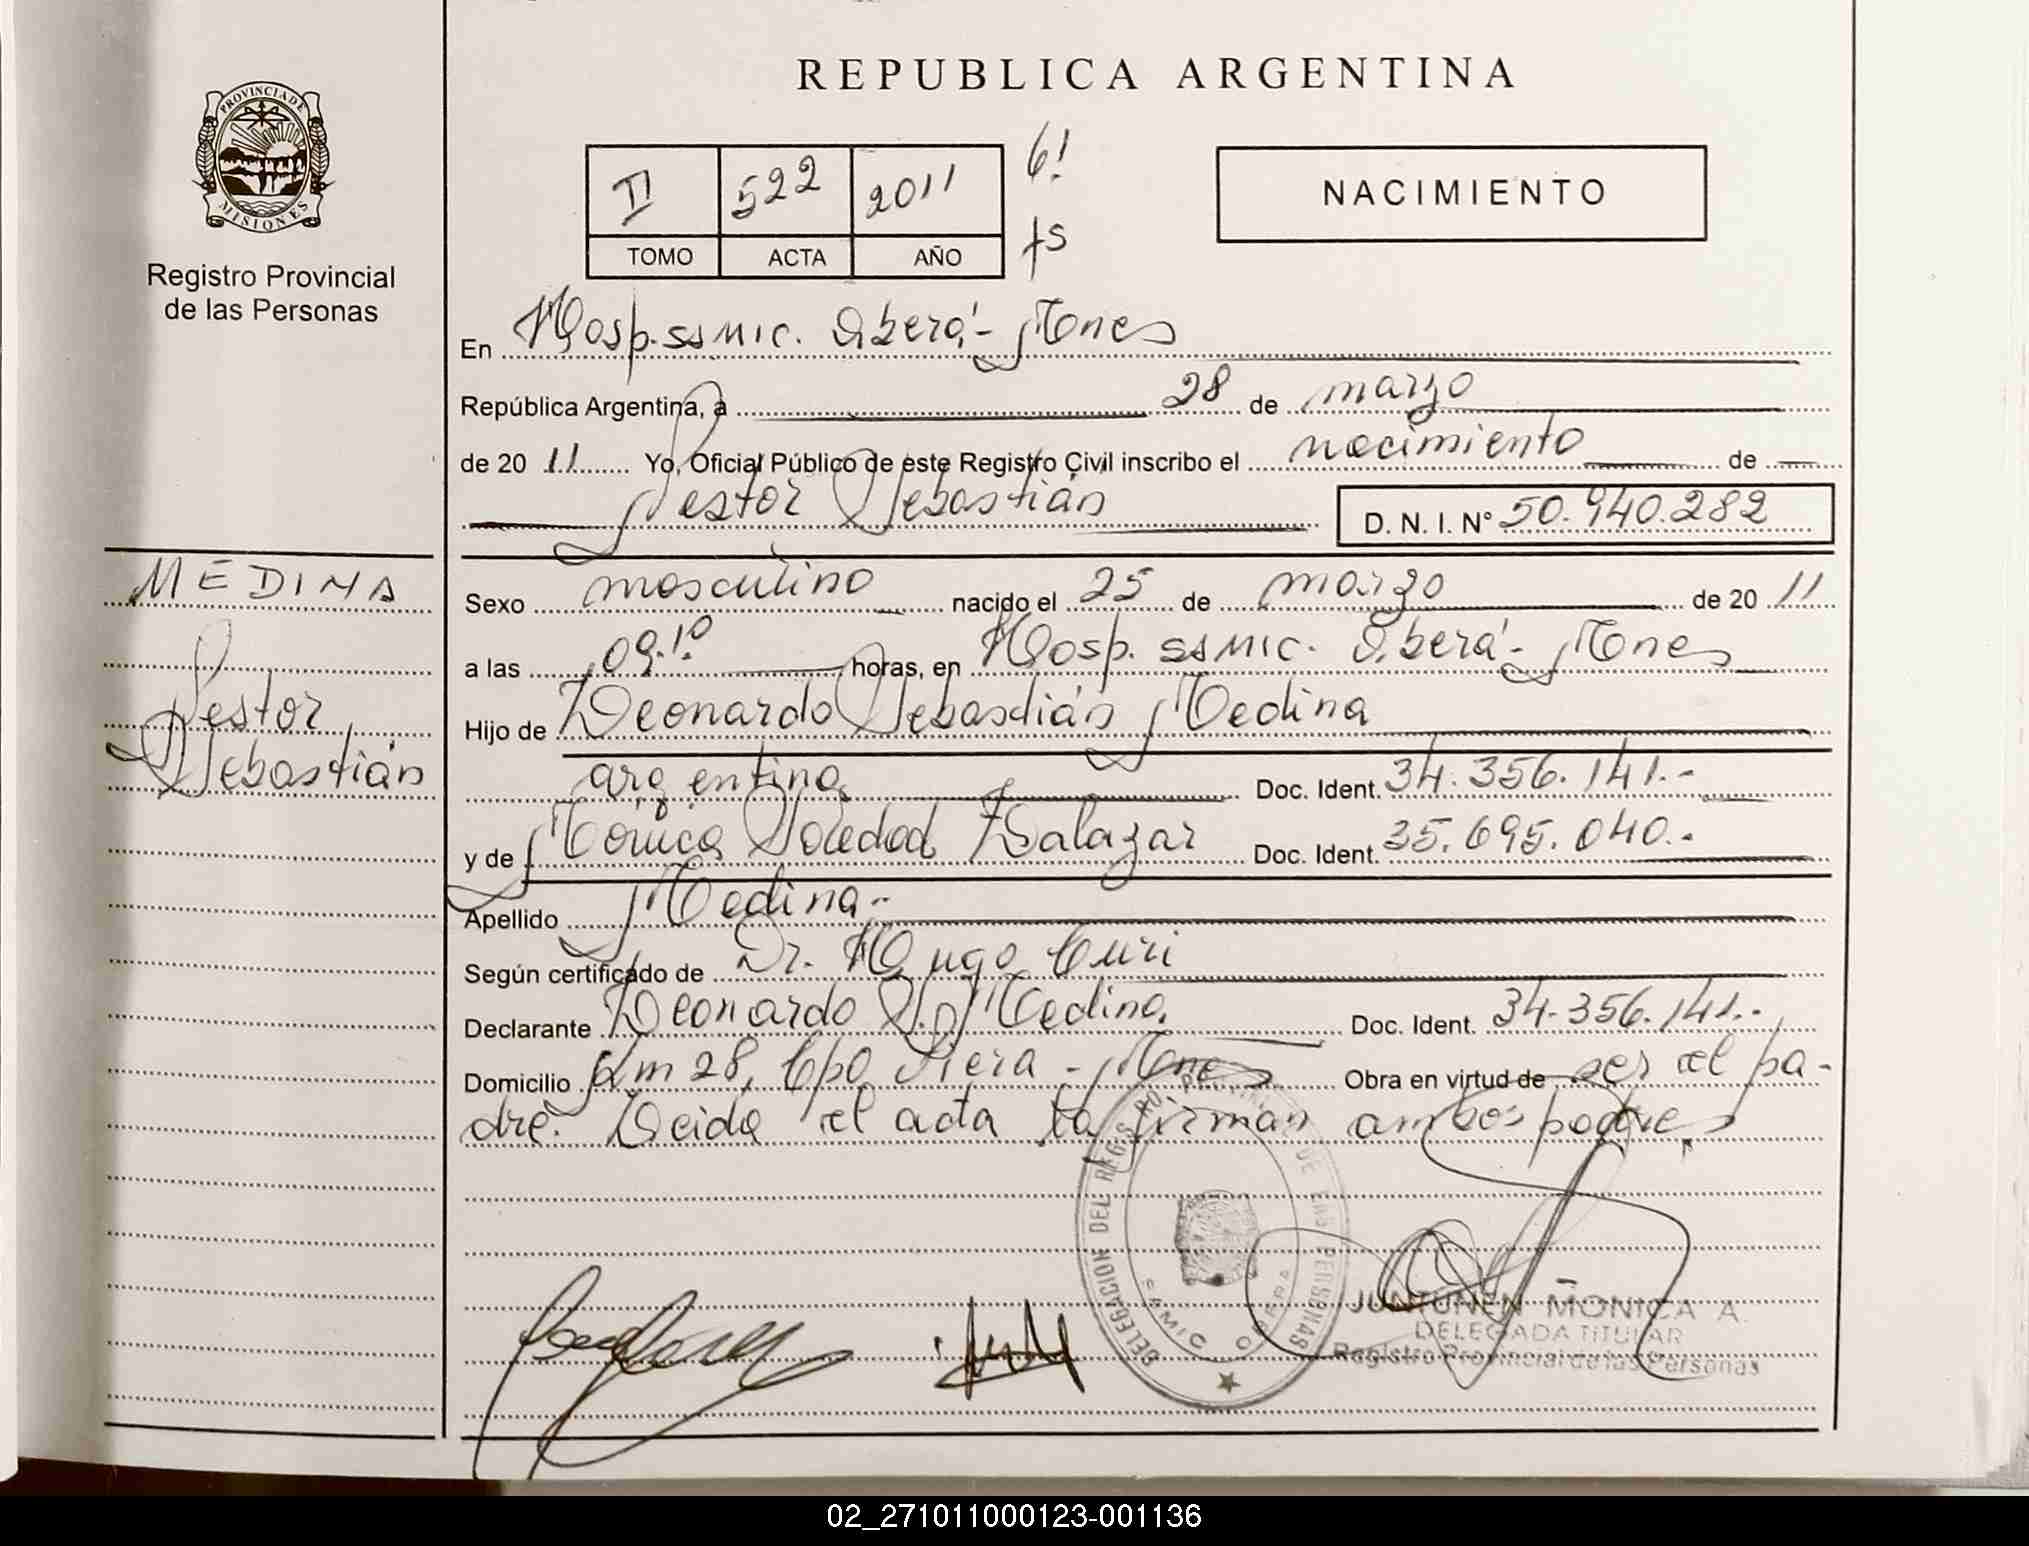 REPUBLICA ARGENTINA
PROVINCIA DE MISIONES
Registro Provincial
de las Personas
II 522 2011
TOMO ACTA AÑO
NACIMIENTO
En Hosp. SAMIC. Oberá - Mnes
República Argentina, a 28 de marzo
de 20 11 Yo, Oficial Público de este Registro Civil inscribo el nacimiento de
Nestor Sebastián D. N. I. N° 50.940.282
MEDINA
Nestor
Sebastián
Sexo masculino nacido el 25 de marzo de 20 11
a las 09.10 horas, en Hosp. SAMIC. Oberá - Mnes
Hijo de Leonardo Sebastián Medina
argentina Doc. Ident. 34.356.141.-
y de Mónica Soledad Salazar Doc. Ident. 35.695.040.-
Apellido Medina.-
Según certificado de Dr. Hugo Curi
Declarante Leonardo S. Medina Doc. Ident. 34.356.141.-
Domicilio Km 28, Cpo. Viera - Mnes Obra en virtud de ser el pa-
dre. Leida el acta la firman ambos padres
DELEGACION DEL REGISTRO PROVINCIAL DE LAS PERSONAS
SAMIC OBERA
JUNTUNEN MONICA A.
DELEGADA TITULAR
Registro Provincial de las Personas
02_271011000123-001136